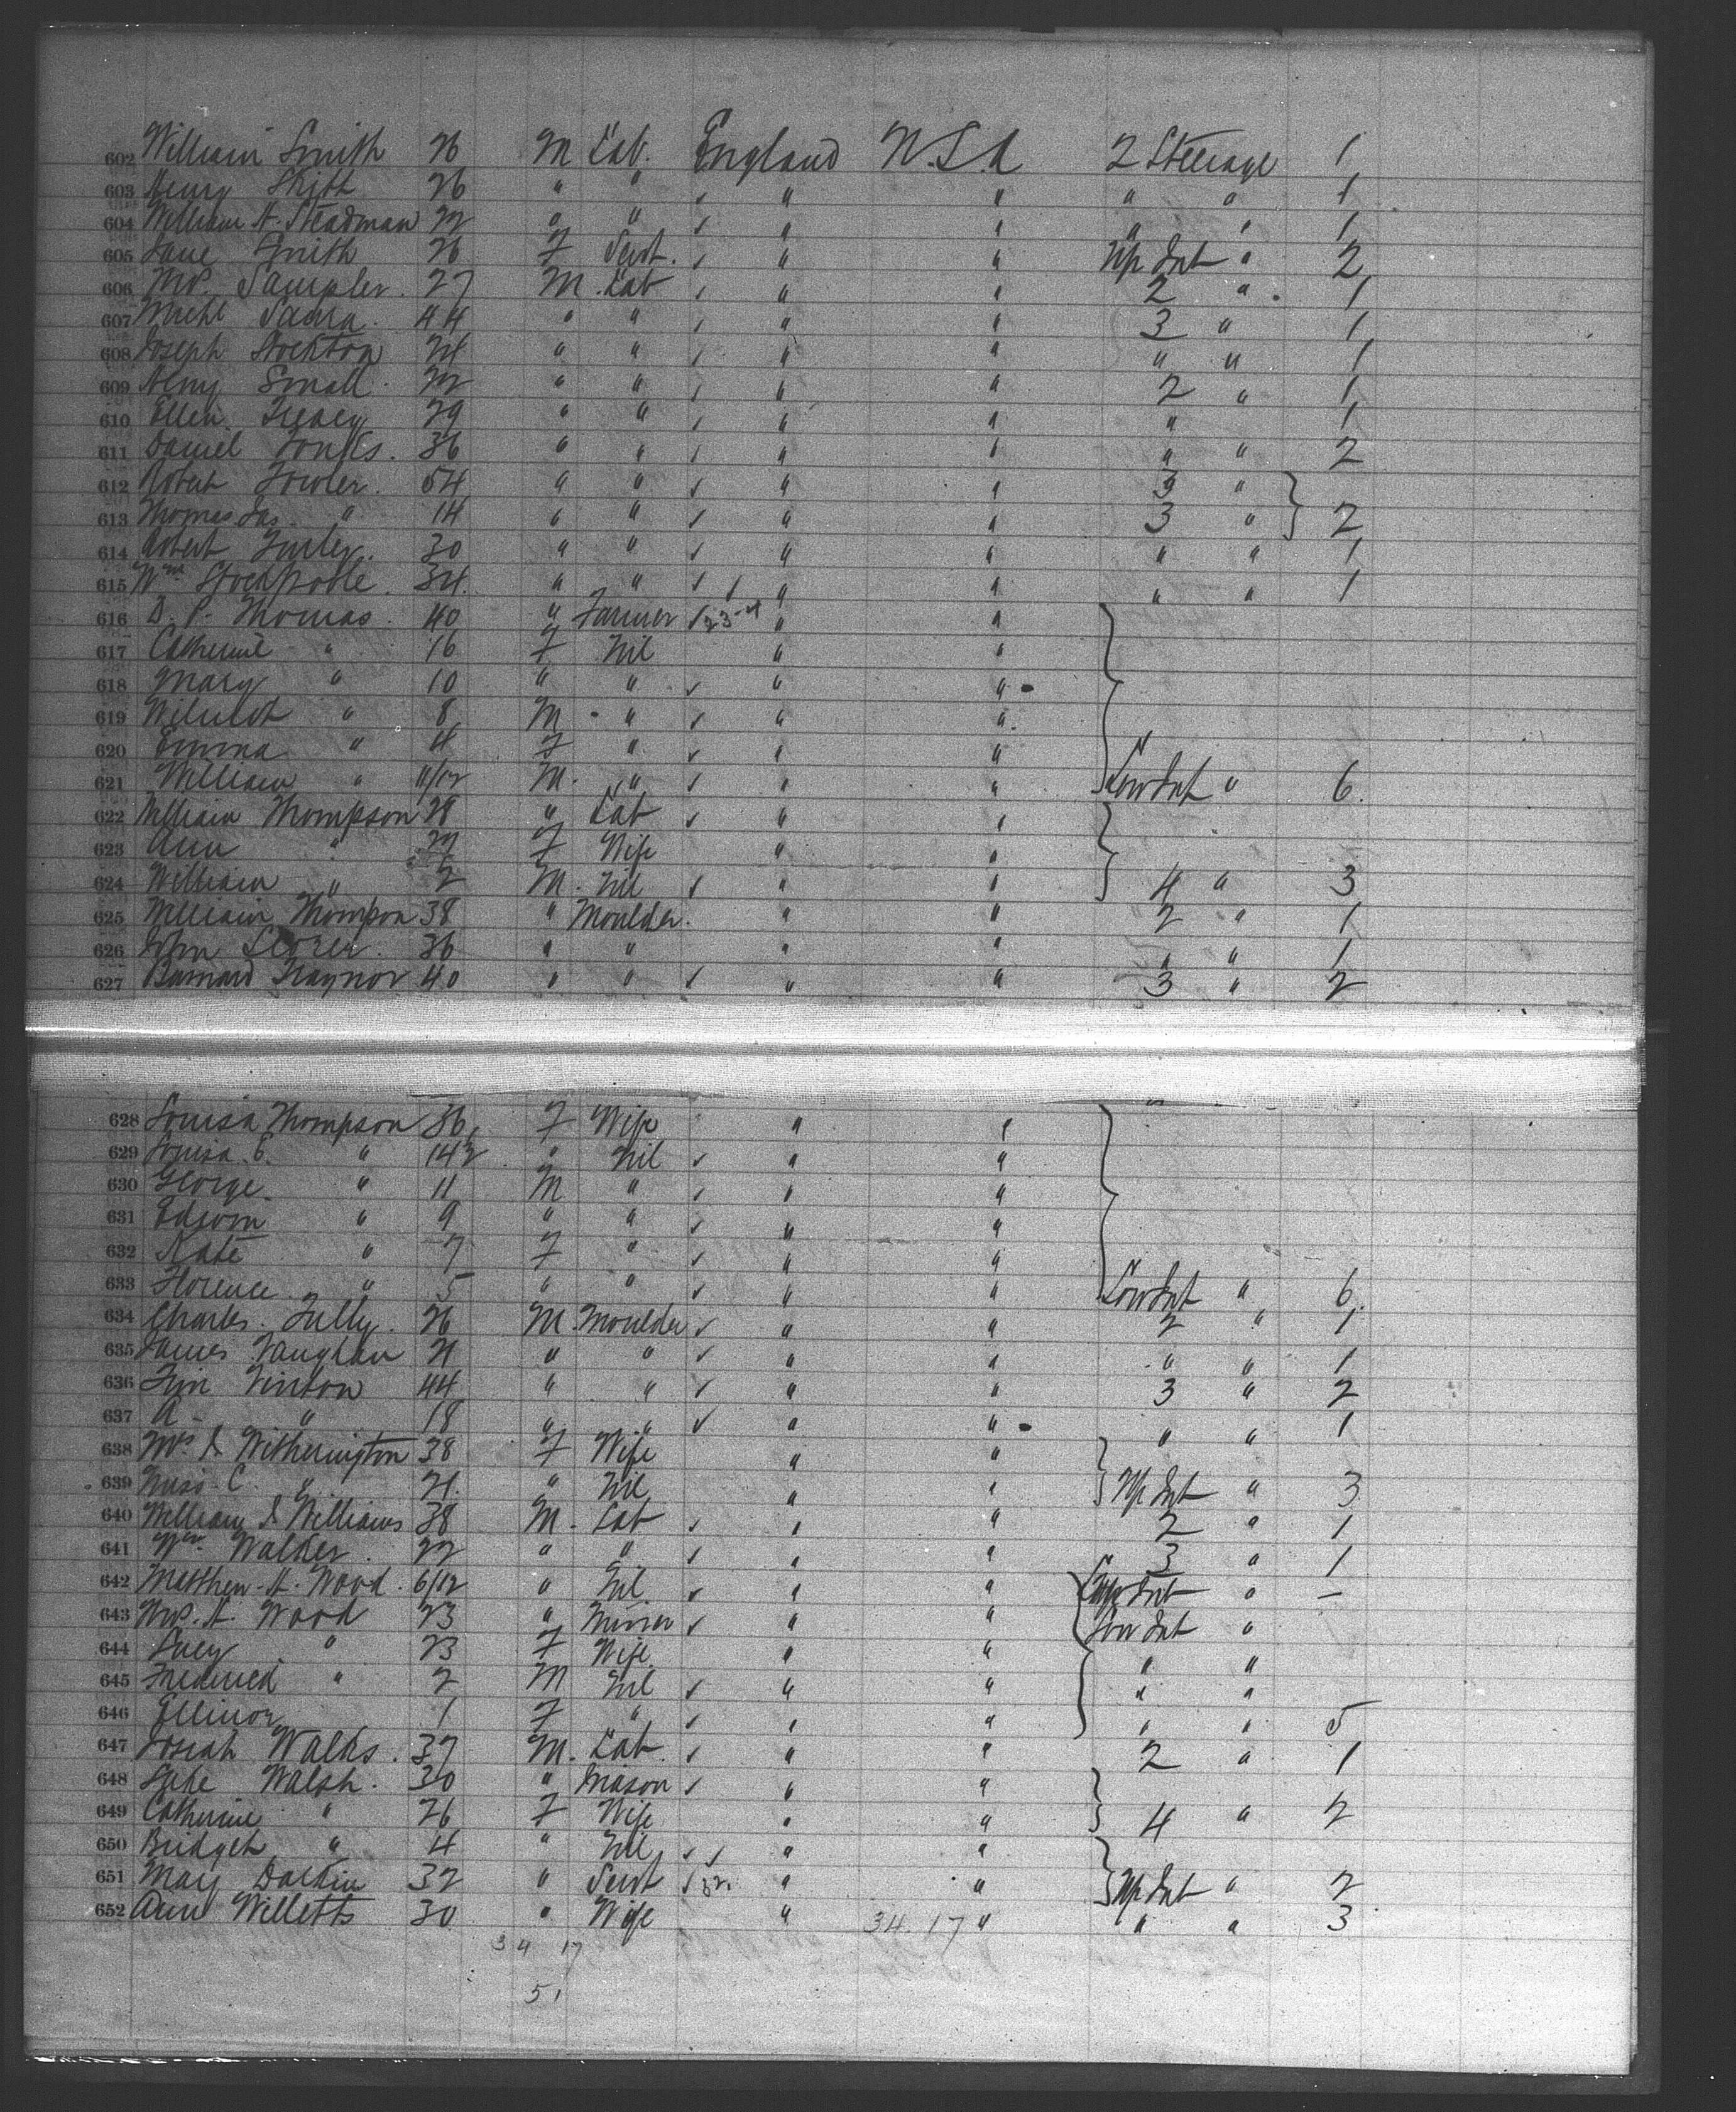 602 William Smith 26 M Lab. England U.S.A 2 Steerage 1
603 Henry Smith 26 " " " " " " 1
604 William H. Steadman 22 " " " " " " 1
605 Jane Smith 26 F Servt. " " Up Int " 2
606 Wm. Sampler 27 M. Lab " " 2 " 1
607 Michl 44 " " " " 3 " 1
608 Joseph Stockton 24 " " " " " " 1
609 Henry Small 22 " " " " 2 " 1
610 Ellen 29 " " " " " 1
611 Daniel 36 " " " " " " 2
612 Robert 54 " " " " 3 "
613 Thomas Jas. " 14 " " " " 3 " 2
614 Robert 30 " " " " " " 1
615 Wm Stockpoole 34 " " " " " " 1
616 D. P. Thomas 40 " Farmer 23-4 " "
617 Catherine " 16 F Nil " "
618 Mary " 10 " " " "
619 " 8 M " " "
620 Emma " 4 F " " "
621 William " 11/12 M. " " " Low Int " 6
622 William Thompson 28 " Lab " "
623 Ann " 27 F Wife " "
624 William " 2 M. Nil " " 4 " 3
625 William Thompson 38 " Moulder " " 2 " 1
626 John 36 " " " " " " 1
627 Barnard Traynor 40 " " " " 3 " 2
628 Louisa Thompson 36 F Wife " "
629 Louisa E. " 14 " Nil " "
630 George " 11 M " " "
631 Edsom " 9 " " " "
632 Kate " 7 F " " "
633 Florence " 5 " " " " Low Int " 6
634 Charles Tully 26 M Moulder " " 2 " 1
635 James Vaughan 21 " " " " " " 1
636 Jim Vinton 44 " " " " 3 " 2
637 A " 18 " " " " " " 1
638 Mrs J. Witherington 38 F Wife " "
639 Miss C. " 21 " Nil " " Up Int " 3
640 William J Williams 38 M. Lab " " 2 " 1
641 Wm. Walker 22 " " " " 3 " 1
642 Matthew H. Wood 6/12 " Nil " " Int " —
643 Wm. H. Wood 23 " Miner " " Low Int "
644 Lucy " 23 F Wife " " " "
645 Frederick " 2 M Nil " " " "
646 Ellinor 1 F " " " " " 5
647 Josiah Walks 37 M. Lab " " 2 " 1
648 Luke Walsh 30 " Mason " "
649 Catherine " 26 F Wife " " 4 " 2
650 Bridget " 4 " Nil " "
651 Mary Darkin 32 " Servt 32 " " Up Int " 2
652 Ann Willetts 30 " Wife " 34.17 " " " 3
34 17
51